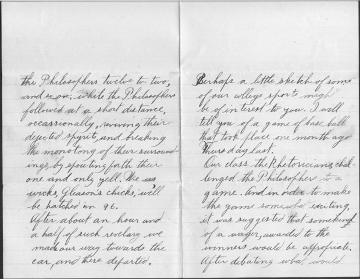 the Philosophers twelve to two,
and so on, while the Philosophers
followed at a short distance,
occassionally, reviving their
dejected spirits and breaking
the monotony of their surround
ings, by spouting forth their
one and only yell. Ike us
wicks, Gleason's chicks, will
be hatched in 96.
After about an hour and
a half of such revelere we
made our way towards the
car, and there departed.
Perhaps a little sketch of some
of our college sports might
be of interest to you. I will
tell you of a game of base ball
that took place one month ago
Thursday last.
Our class the Rhetoricians, chal-
lenged the Philosophers to a
game. And in order to make
the game somewhat exciting,
it was suggested that something
of a wager, awarded to the
winners would be appropriate.
After debating what would